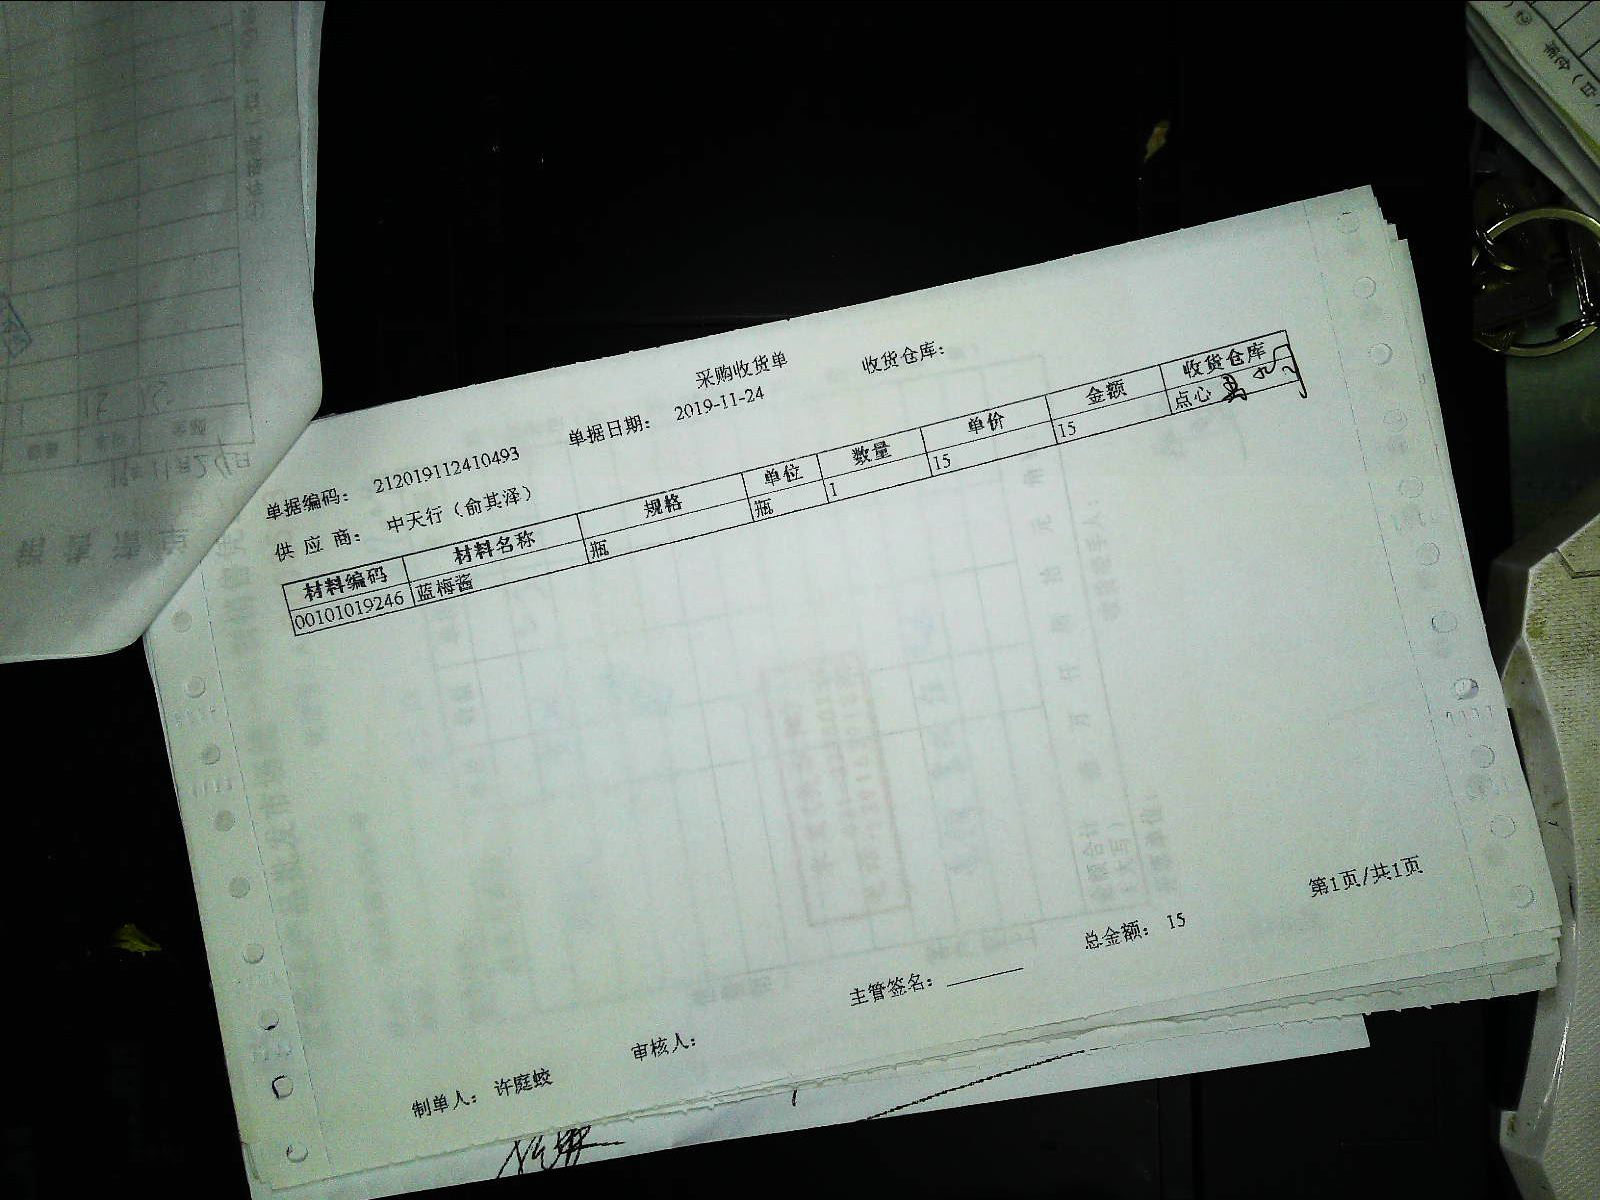 采购收货单
收货仓库：
单据编码： 212019112410493
单据日期： 2019-11-24
供 应 商： 中天行（俞其泽）
材料编码 材料名称 规格 单位 数量 单价 金额 收货仓库
00101019246 蓝梅酱 瓶 瓶 1 15 15 点心
总金额： 15
第1页/共1页
主管签名：
审核人：
制单人： 许庭蛟